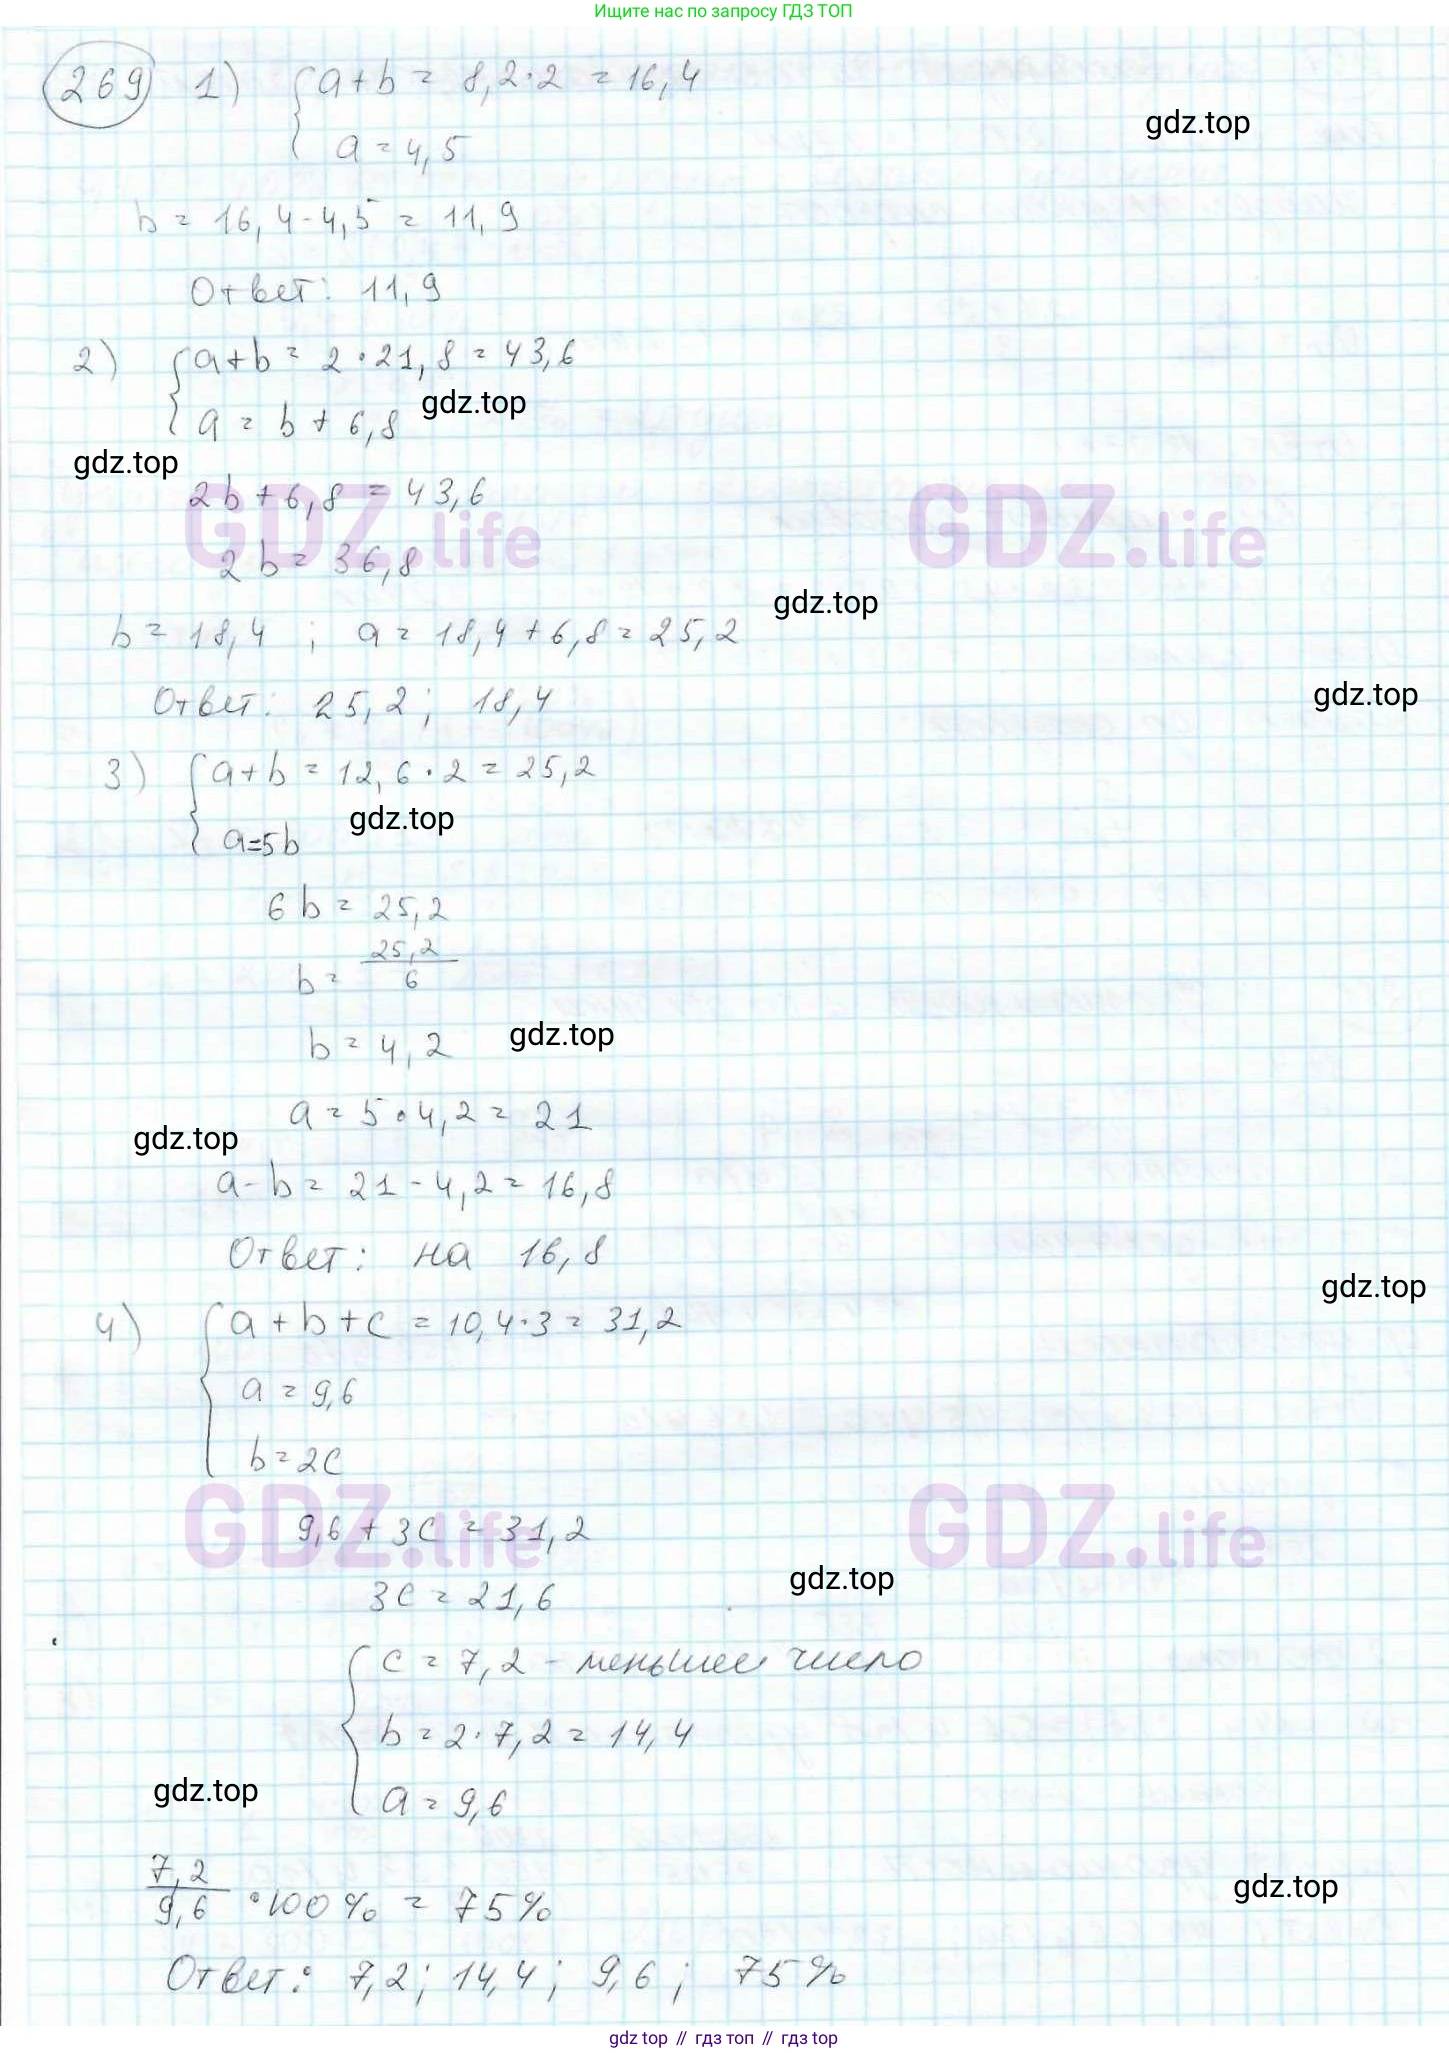 Ищите нас по запросу ГДЗ ТОП
269 1) { a + b = 8,2 · 2 = 16,4
gdz.top
a = 4,5
b = 16,4 - 4,5 = 11,9
Ответ: 11,9
2) { a + b = 2 · 21,8 = 43,6
gdz.top
a = b + 6,8
gdz.top
2b + 6,8 = 43,6
GDZ.life GDZ.life
2b = 36,8
gdz.top
b = 18,4 ; a = 18,4 + 6,8 = 25,2
gdz.top
Ответ: 25,2; 18,4
3) { a + b = 12,6 · 2 = 25,2
gdz.top
a = 5b
6b = 25,2
b = 25,2/6
gdz.top
b = 4,2
a = 5 · 4,2 = 21
gdz.top
a - b = 21 - 4,2 = 16,8
Ответ: на 16,8
gdz.top
4) { a + b + c = 10,4 · 3 = 31,2
a = 9,6
b = 2c
GDZ.life GDZ.life
9,6 + 3c = 31,2
gdz.top
3c = 21,6
{ c = 7,2 - меньшее число
b = 2 · 7,2 = 14,4
gdz.top
a = 9,6
gdz.top
7,2/9,6 · 100% = 75%
Ответ: 7,2; 14,4; 9,6; 75%
gdz top // гдз топ // гдз top